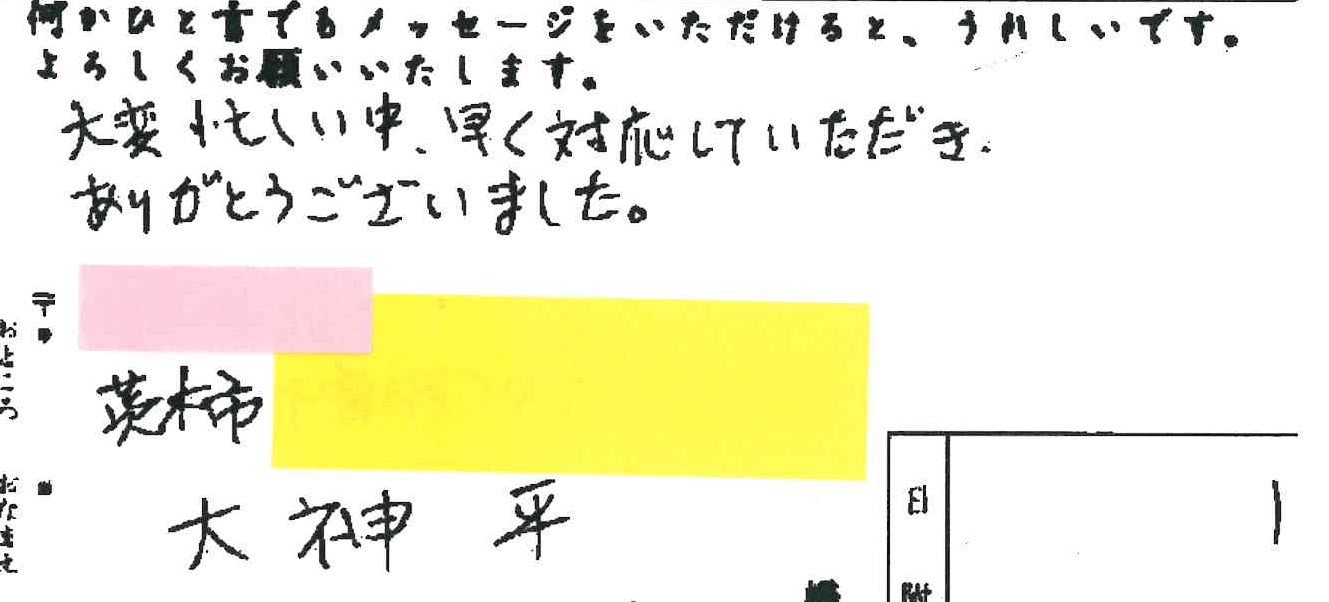 何かひと言でもメッセージをいただけると、うれしいです。
よろしくお願いいたします。
大変忙しい中、早く対応していただき、
ありがとうございました。
〒
おところ
茨木市
おなまえ
大神 平
様
日
付